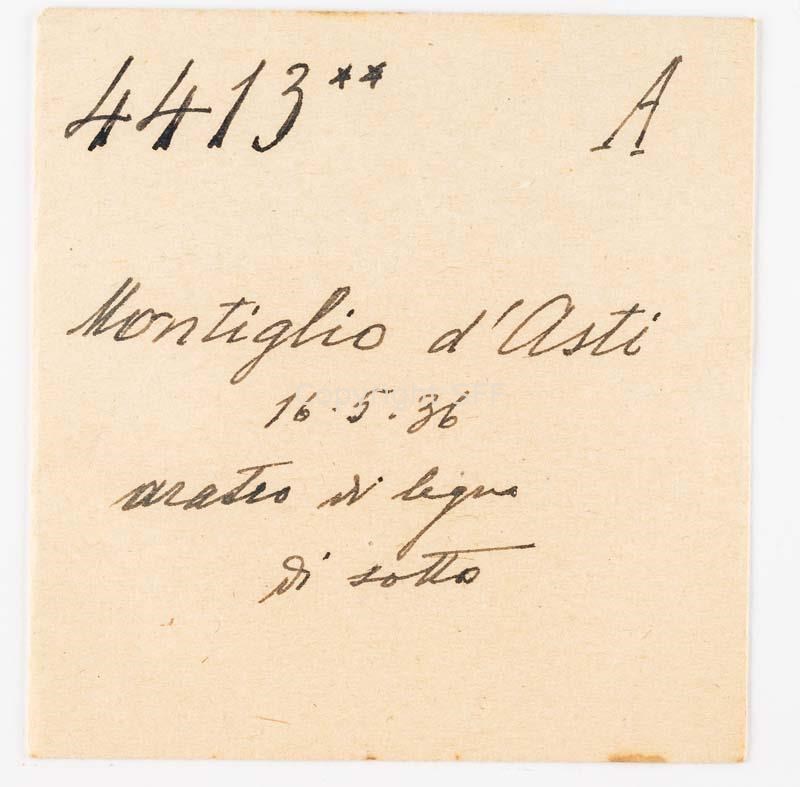 4413** A
Montiglio d'Asti
16.5.36
aratro di legno
di sotto